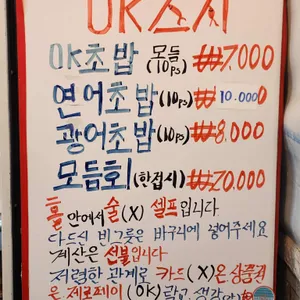 OK스시
OK초밥 모듬(10Ps) ₩7.000
연어초밥(10Ps) ₩10.000
광어초밥(10Ps) ₩8.000
모듬회(한접시) ₩20.000
홀 안에서 술(X) 셀프입니다
다드신 빈그릇은 바구니에 넣어주세요
계산은 선불입니다
저렴한 관계로 카드(X)온상품권
은 제로페이(OK)